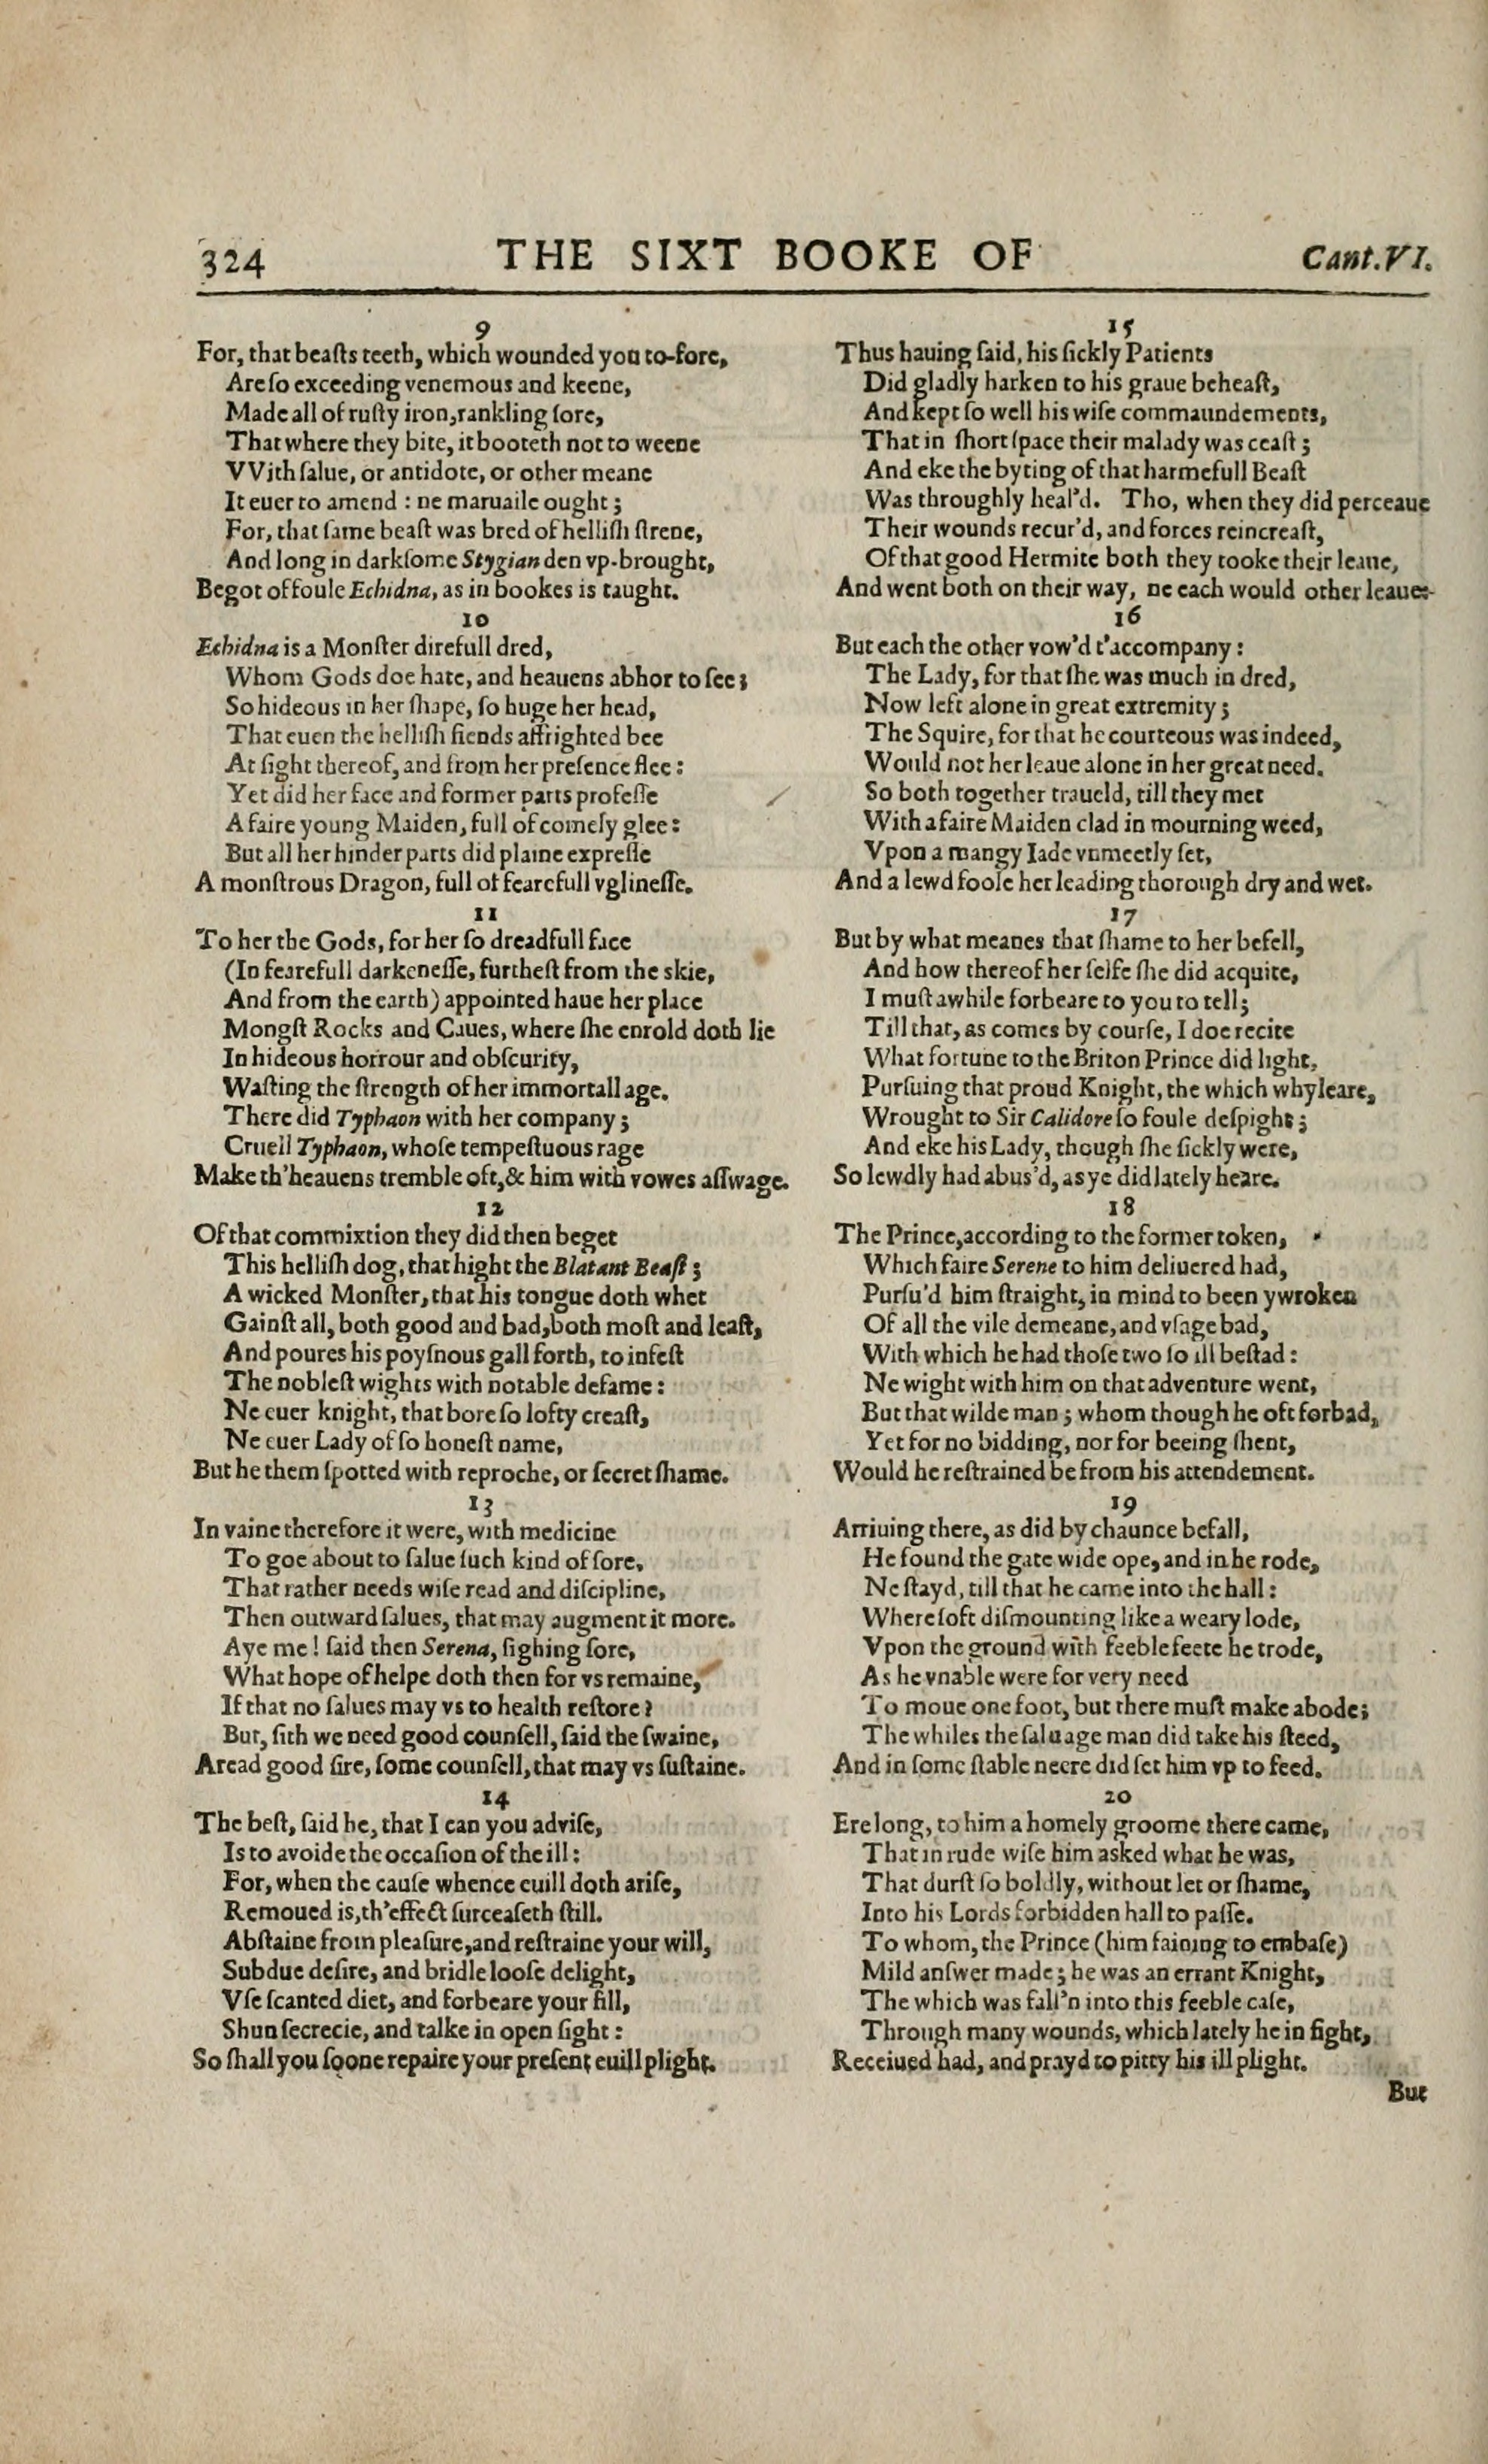 324 THE SIXT BOOKE OF Cant.VI.
9
For, that beaſts teeth, which wounded you to-fore,
Are ſo exceeding venemous and keene,
Made all of ruſty iron, rankling ſore,
That where they bite, it booteth not to weene
VVith ſalue, or antidote, or other meane
It euer to amend : ne maruaile ought ;
For, that ſame beaſt was bred of helliſh ſtrene,
And long in darkſome Stygian den vp-brought,
Begot of foule Echidna, as in bookes is taught.
10
Echidna is a Monſter direfull dred,
Whom Gods doe hate, and heauens abhor to ſee ;
So hideous in her ſhape, ſo huge her head,
That euen the helliſh fiends affrighted bee
At ſight thereof, and from her preſence flee :
Yet did her face and former parts profeſſe
A faire young Maiden, full of comely glee :
But all her hinder parts did plaine expreſſe
A monſtrous Dragon, full of fearefull vglineſſe.
11
To her the Gods, for her ſo dreadfull face
(In fearefull darkeneſſe, furtheſt from the skie,
And from the earth) appointed haue her place
Mongſt Rocks and Caues, where ſhe enrold doth lie
In hideous horrour and obſcurity,
Waſting the ſtrength of her immortall age.
There did Typhaon with her company ;
Cruell Typhaon, whoſe tempeſtuous rage
Make th'heauens tremble oft, & him with vowes aſſwage.
12
Of that commixtion they did then beget
This helliſh dog, that hight the Blatant Beaſt ;
A wicked Monſter, that his tongue doth whet
Gainſt all, both good and bad, both moſt and leaſt,
And poures his poyſnous gall forth, to infeſt
The nobleſt wights with notable defame :
Ne euer knight, that bore ſo lofty creaſt,
Ne euer Lady of ſo honeſt name,
But he them ſpotted with reproche, or ſecret ſhame.
13
In vaine therefore it were, with medicine
To goe about to ſalue ſuch kind of ſore,
That rather needs wiſe read and diſcipline,
Then outward ſalues, that may augment it more.
Aye me ! ſaid then Serena, ſighing ſore,
What hope of helpe doth then for vs remaine,
If that no ſalues may vs to health reſtore ?
But, ſith we need good counſell, ſaid the ſwaine,
Aread good ſire, ſome counſell, that may vs ſuſtaine.
14
The beſt, ſaid he, that I can you adviſe,
Is to avoide the occaſion of the ill :
For, when the cauſe whence euill doth ariſe,
Remoued is, th'effect ſurceaſeth ſtill.
Abſtaine from pleaſure, and reſtraine your will,
Subdue deſire, and bridle looſe delight,
Vſe ſcanted diet, and forbeare your fill,
Shun ſecrecie, and talke in open ſight :
So ſhall you ſoone repaire your preſent euill plight.
15
Thus hauing ſaid, his ſickly Patients
Did gladly harken to his graue beheaſt,
And kept ſo well his wiſe commaundements,
That in ſhort ſpace their malady was ceaſt ;
And eke the byting of that harmefull Beaſt
Was throughly heal'd. Tho, when they did perceaue
Their wounds recur'd, and forces reincreaſt,
Of that good Hermite both they tooke their leaue,
And went both on their way, ne each would other leaue:
16
But each the other vow'd t'accompany :
The Lady, for that ſhe was much in dred,
Now left alone in great extremity ;
The Squire, for that he courteous was indeed,
Would not her leaue alone in her great need.
So both together traueld, till they met
With a faire Maiden clad in mourning weed,
Vpon a mangy Iade vnmeetly ſet,
And a lewd foole her leading thorough dry and wet.
17
But by what meanes that ſhame to her befell,
And how thereof her ſelfe ſhe did acquite,
I muſt awhile forbeare to you to tell ;
Till that, as comes by courſe, I doe recite
What fortune to the Briton Prince did light,
Purſuing that proud Knight, the which whyleare,
Wrought to Sir Calidore ſo foule deſpight ;
And eke his Lady, though ſhe ſickly were,
So lewdly had abus'd, as ye did lately heare.
18
The Prince, according to the former token,
Which faire Serene to him deliuered had,
Purſu'd him ſtraight, in mind to been ywroken
Of all the vile demeane, and vſage bad,
With which he had thoſe two ſo ill beſtad :
Ne wight with him on that adventure went,
But that wilde man ; whom though he oft forbad,
Yet for no bidding, nor for beeing ſhent,
Would he reſtrained be from his attendement.
19
Arriuing there, as did by chaunce befall,
He found the gate wide ope, and in he rode,
Ne ſtayd, till that he came into the hall :
Where ſoft diſmounting like a weary lode,
Vpon the ground with feeble feete he trode,
As he vnable were for very need
To moue one foot, but there muſt make abode ;
The whiles the ſaluage man did take his ſteed,
And in ſome ſtable neere did ſet him vp to feed.
20
Ere long, to him a homely groome there came,
That in rude wiſe him asked what he was,
That durſt ſo boldly, without let or ſhame,
Into his Lords forbidden hall to paſſe.
To whom, the Prince (him faining to embaſe)
Mild anſwer made ; he was an errant Knight,
The which was fall'n into this feeble caſe,
Through many wounds, which lately he in fight,
Receiued had, and prayd to pitty his ill plight.
But